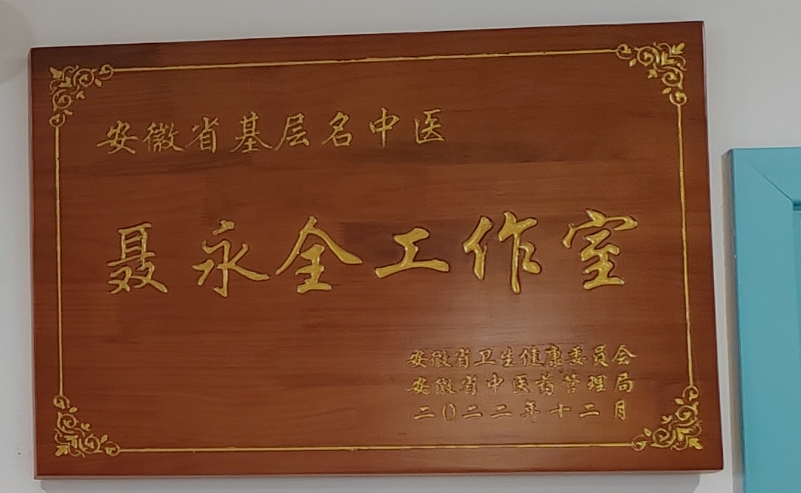 安徽省基层名中医
聂永全工作室
安徽省卫生健康委员会
安徽省中医药管理局
二〇二二年十二月